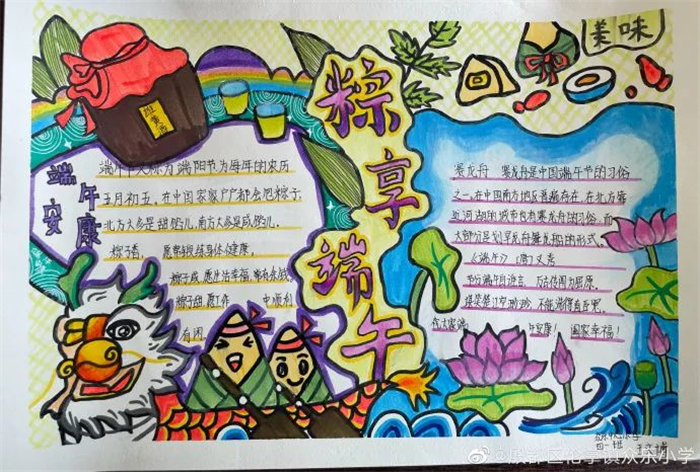 美味
雄黄酒
粽享端午
端午
安康
端午节又称为端阳节为每年的农历
五月初五,在中国家家户户都会包粽子
北方大多是甜馅儿,南方大多是咸馅儿.
粽子香, 愿
身体健康,
粽子
愿生活幸福
粽子甜 愿工作 中顺利
有闲.
赛龙舟 赛龙舟是中国端午节的习俗
之一,在中国南方地区普遍存在,在北方靠
近河湖的城市也有赛龙舟的习俗,而
大部分是划旱龙舟舞龙船的形式.
《端午》 (唐) 文秀
节分端午自谁言, 万古传闻为屈原,
堪笑楚江空渺渺,不能洗得直臣冤.
在
端
午安康! 国家幸福!
四一班
众东小学